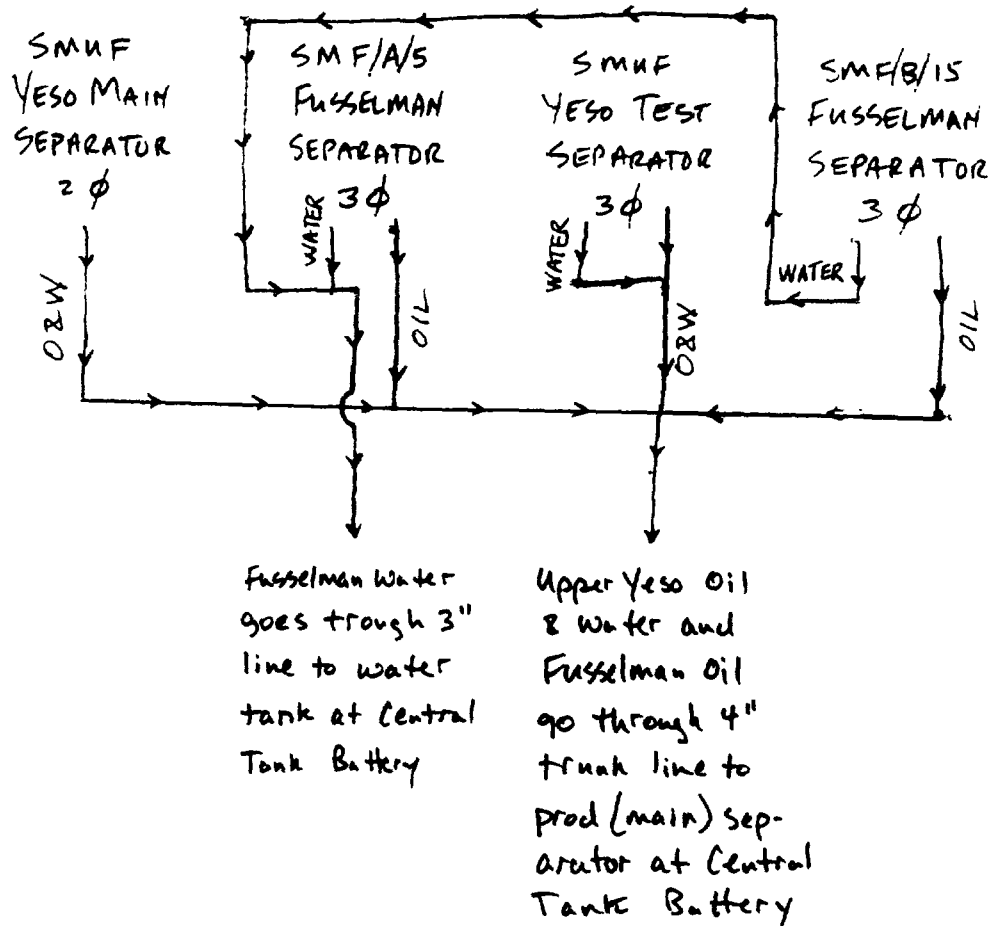 SMUF
YESO MAIN
SEPARATOR
2 Ø
O&W
SMF/A/5
FUSSELMAN
SEPARATOR
3Ø
WATER
OIL
SMUF
YESO TEST
SEPARATOR
3Ø
WATER
O&W
SMF/B/15
FUSSELMAN
SEPARATOR
3 Ø
WATER
OIL
Fusselman Water
goes trough 3"
line to water
tank at Central
Tank Battery
Upper Yeso Oil
& Water and
Fusselman Oil
go through 4"
trunk line to
prod (main) sep-
arator at Central
Tank Battery